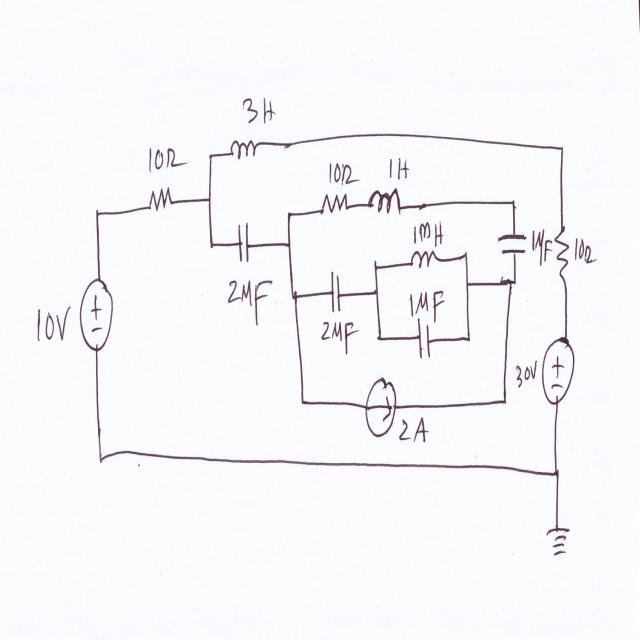 3H
10Ω
10Ω
1H
1MH
1MF
10Ω
2MF
1MF
2MF
10V
+
-
30V
+
-
2A